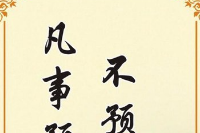 凡事
不预